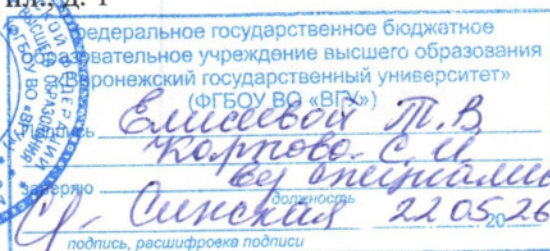 пл., д. 1
федеральное государственное бюджетное
образовательное учреждение высшего образования
«Воронежский государственный университет»
(ФГБОУ ВО «ВГУ»)
Подпись Елисеевой Т.В.
Карпова С.И.
заверяю вед специалист
должность
Синская 22 05 2026
подпись, расшифровка подписи